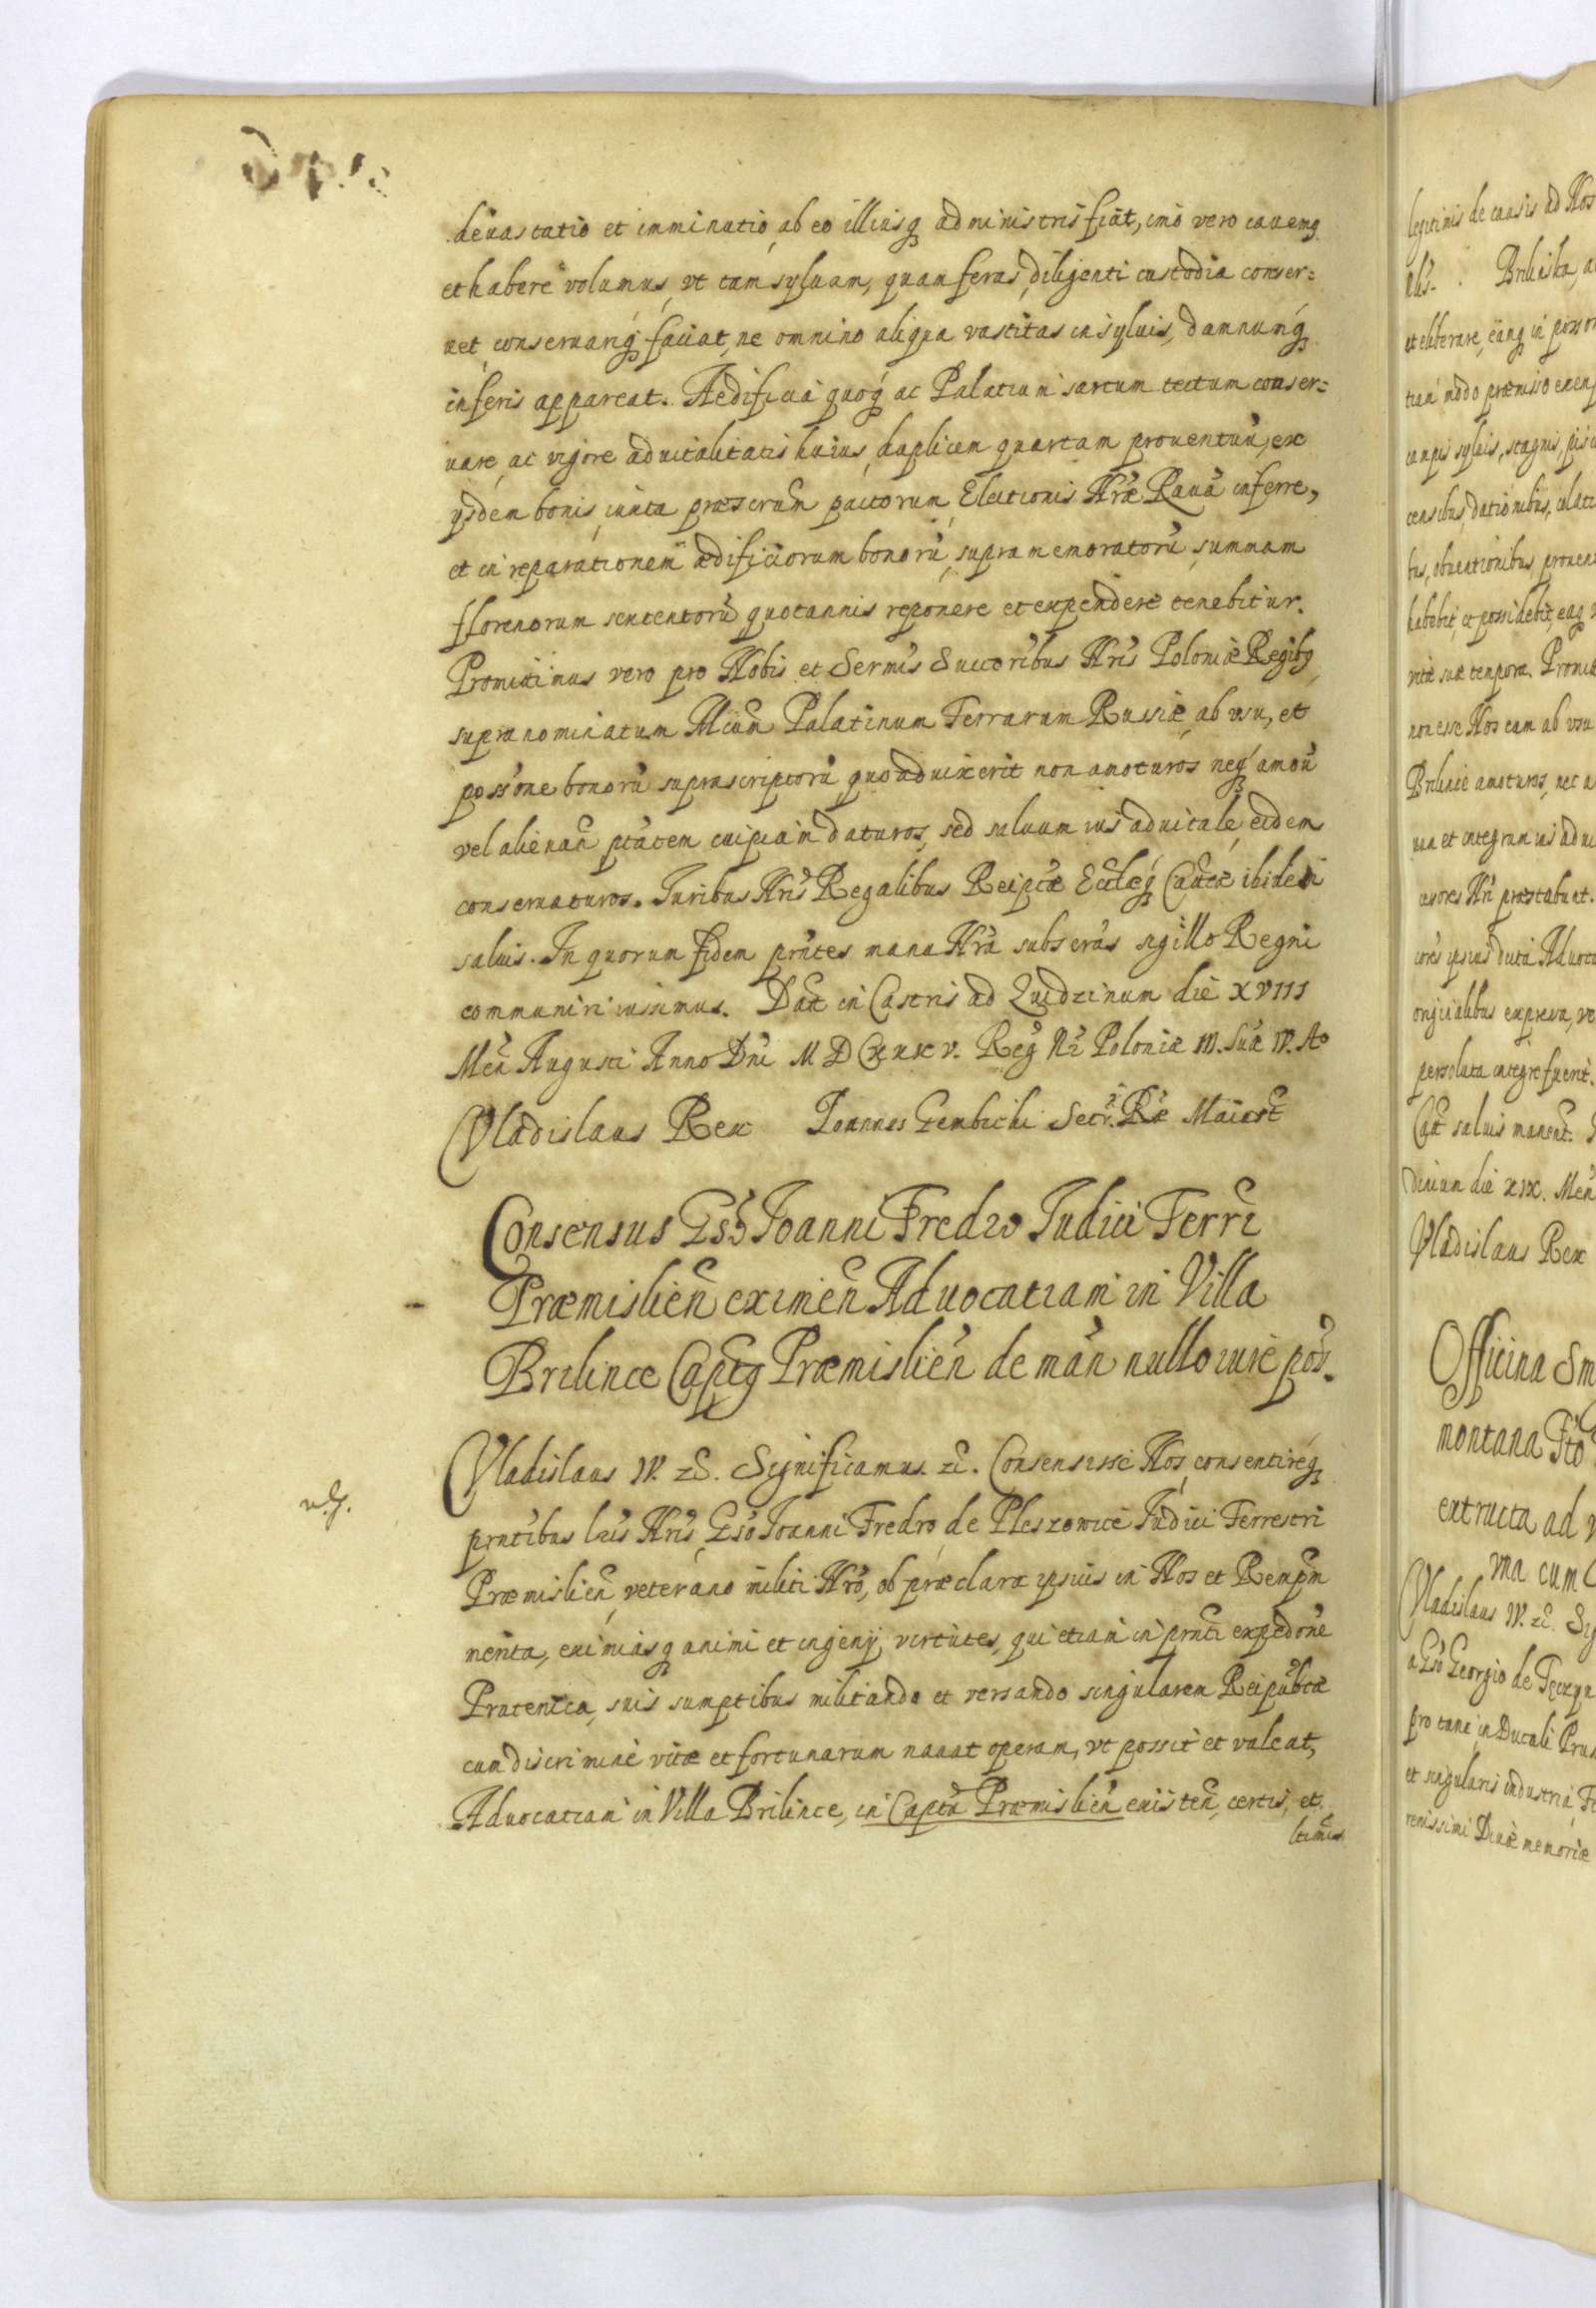 deuastatio et imminutio, ab eo illiusq administris fiat, imò vero cauemq
et habere volumus, vt tam syluam, quam feras, diligenti custodia conser=
uet, conseruariq faciat, ne omnino aliqua vastitas in syluis, damnumq
in feris appareat. Aedificia quoq ac Palatium sartum tectum conser=
uare, ac vigore aduitalitatis huius, duplicem quartam prouentuũ, ex
ysdem bonis, iuxta præscrum pactorum Electionis Nræ Rauã inferre,
et in reparationem ædificiorum bonorũ, supramemoratorũ, summam
florenorum sexcentorũ quotannis reponere et expendere tenebitur.
Promittimus vero pro Nobis et Sermis Succoribus Nris Poloniæ Regibq
supranominatum Mcum Palatinum Terrarum Russiæ, ab vsu, et
possone bonorũ suprascriptorũ quoad vixerit non amoturos neq amou
vel alienan ptatem cuipiam daturos, sed saluum ius aduitale, eidem
conseruaturos. Iuribus Nris Regalibus Reipcæ Ecclæq Cattæ ibidem
saluis. In quorum fidem pntes manu Nra subscras sigillo Regni
communiri iussimus. Dat in Castris ad Quidzinum die XVIII
Men Augusti Anno Dni MDCXXXV. Reg Nr Poloniæ III. Suæ IV. Ao
Vladislaus Rex Ioannes Gembicki Secr. Ræ Maiest
Consensus Gso Ioanni Fredro Iudici Terri
Præmislien eximen Aduocatiam in Villa
Brilince Captq Præmislien de man nullo iure pos.
Vladislaus IV. zc. Significamus. zc. Consensisse Nos, consentireq
pntibus lris Nris, Gso Ioanni Fredro, de Pleszowice Iudici Terrestri
Præmislien, veterano militi Nro, ob præclara ipsius in Nos et Rempm
merita, eximiasq animi et ingenÿ virtutes, qui etiam in pnti expedone
Prutenica, suis sumptibus militando et versando singularem Reipublcæ
cum discrimine vitæ et fortunarum nauat operam, vt possit et valeat,
Aduocatiam in Villa Brilince, in Captu Præmislien existen, certis, et
ltimis
legitimis de causis ad Nos
Brilinska, a
et eliberare, eamq in posson
tiam modo præmisso exemp
campis syluis, stagnis, pisci
censibus, dationibus, colate
bus, obuentionibus, prouen
habebit, et possidebit, eaq
vitæ suæ tempora. Promit
non esse Nos eum ab vsu
Brilince amoturos, nec a
uum et integrum ius adui
cessores Nri præstabunt.
cores ipsius dicta Aduoca
originalibus expressa, ve
persoluta integre fuerit.
Catt saluis manent.
die XIX. Men
Vladislaus Rex
Officina
montana
extructa ad
vna cum
Vladislaus IV. zc.
a Gso Georgio de
pro tunc in Ducali Prus
et singularis industria
renissimi Diuæ memoriæ